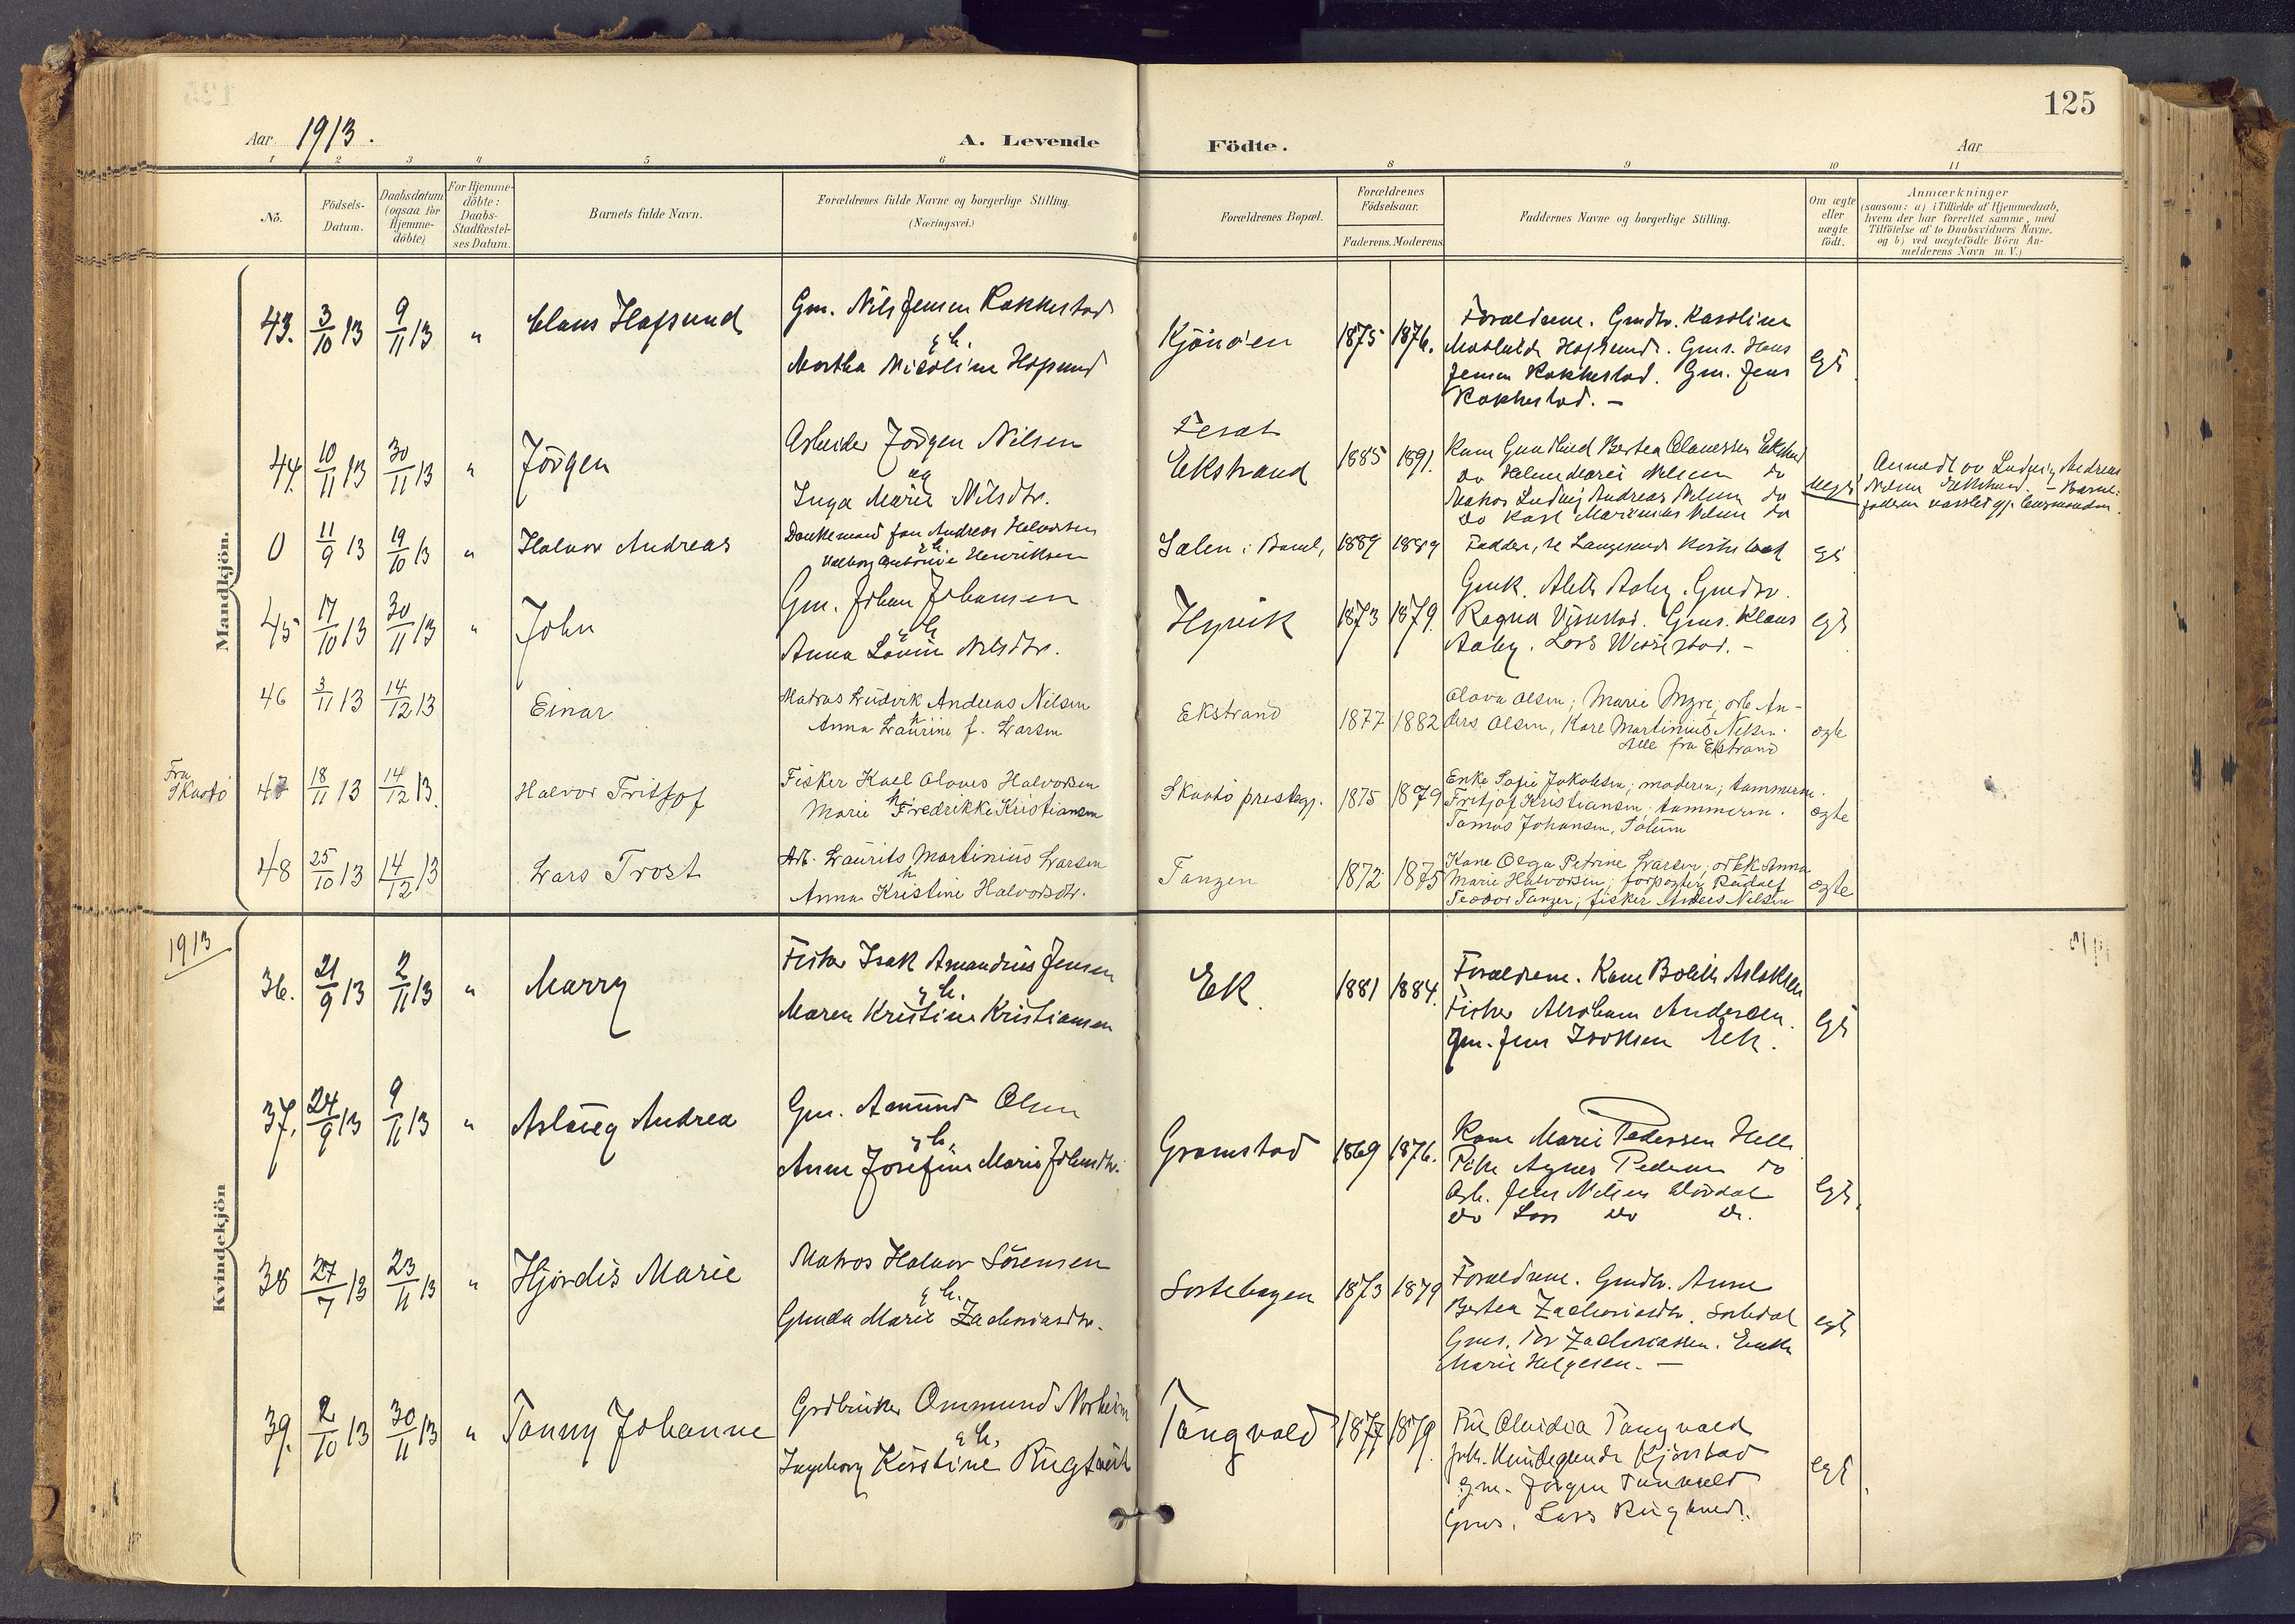 125
Aar 1913.
A. Levende Födte.
Aar
1 2 3 4 5 6 8 9 10 11
No.
Födsels-Datum.
Daabsdatum (ogsaa for Hjemme-döbte)
For Hjemme-döbte: Daabs-Stadfæstel-ses Datum.
Barnets fulde Navn.
Forældrenes fulde Navne og borgerlige Stilling. (Næringsvei.)
Forældrenes Bopæl.
Forældrenes Födselsaar.
Faderens. Moderens
Faddernes Navne og borgerlige Stilling.
Om ægte eller uægte födt.
Anmærkninger
(saasom: a) i Tilfælde af Hjemmedaab,
hvem der har forrettet samme, med
Tilföielse af to Daabsvidners Navne.
og b) ved uegtefödte Börn An-
melderens Navn m. V.)
Mandkjön.
43. 3/10 13 9/11 13 " Claus Hafsund
Gm. Nils Jensen Rakkestad
g. h.
Martha Nicoline Hafsund
Kjönöen 1875 1876.
Forældrene. Gmdtr. Karoline
Mathilde Hafsund. Gms. Hans
Jensen Rakkestad. Gm. Jens
Rakkestad. -
Egt
44. 10/11 13 30/11 13 " Jörgen
Arbeider Jörgen Nilsen
og
Inga Marie Nilsdtr.
Ekstrand 1885 1891.
Kone Gunhild Bertea Olavessen Ekstrand
do Marie Nilsen do
Matros Ludvig Andreas Nilsen do
do Karl Martinius Nilsen do
Uegt
Anmeldt av Ludvig Andreas
Nilsen Ekstrand. - Barne-
faderen varslet gj. lensmanden.
0 11/9 13 19/10 13 " Halvor Andreas
Andreas Halvorsen
g. h.
Henriksen
i Bamel, 1889 1889
Faddere, se Langesunds Kirkebok
egt
45 17/10 13 30/11 13 " John
Gm. Johan Johansen
g. h.
Anna Lovise Nilsdtr.
Hyvik 1873 1879.
Gmk. Aleth Aaby. Gmdtr.
Ragna Vissestad. Gms. Klaus
Aaby. Lars Wissestad. -
Egt
46 3/11 13 14/12 13 Einar
Matros Ludvik Andreas Nilsen
h
Anna Laurine f. Larsen
Ekstrand 1877 1882
Olava Olsen; Marie Myre; arb. An-
ders Olsen, Karl Martinius Nilsen.
Alle fra Ekstrand
ægte
Fra
Skaatö
47 18/11 13 14/12 13. Halvor Fritjof
Fisker Karl Olaves Halvorsen
h.
Marie Fredrikke Kristiansen
Skaatö prestegj. 1875 1879
Enke Sofie Jakobsen; moderen; tømmerm.
Fritjof Kristiansen; tømmerm.
Tomas Johansen,
ægte
48 25/10 13 14/12 13 Lars Trost
Arb. Laurits Martinius Larsen
h
Anna Kristine Halvorsdtr.
Tangen 1872 1875
Kone Olga Petrine Larsen; Anna
Marie Halvorsen; Rudolf
Teodor Tangen; fisker Anders Nilsen
ægte
1913
Kvindekjön
36. 21/9 13 2/11 13 " Marry
Fisker Isak Amandius Jensen
g. h.
Maren Kristine Kristiansen
Ek. 1881 1884.
Forældrene. Kone Bolette Aslaksen
Fisker Abraham Andersen.
Gm. Jens Isaksen Ek.
Egt
37. 24/9 13 9/11 13 " Aslaug Andrea
Gm. Amund Olsen
g. h.
Anne Josefine Marie Johnsdtr.
Gromstad 1869 1876.
Kone Marie Pedersen Helle
Pike Agnes Pedersen do
Arb. Jens Nilsen
do Lars do do.
Egt.
38 27/7 13 23/11 13 " Hjördis Marie
Matros Halvor Sörensen
g. h.
Gunda Marie Zachariasdtr.
Sortebogen 1873 1879
Forældrene. Gmdtr. Anne
Bertea Zachariasdtr.
Gms. Zachariassen. Enke
Marie Helgesen. -
egt
39. 2/10 13 30/11 13 " Fanny Johanne
Grdbruker Ommund Norheim
g. h.
Ingeborg Kirstine
Tangvald 1877 1879.
Tangvald
Kjörstad
gm. Jörgen
Gms. Lars
egt.